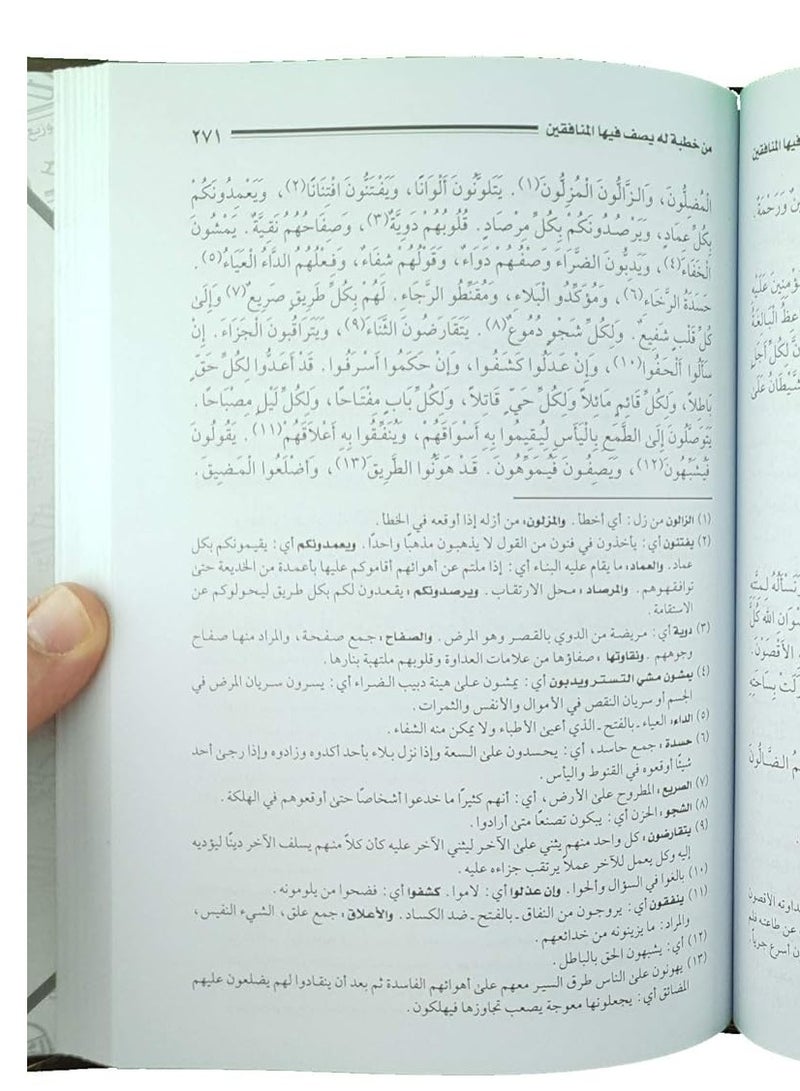 من خطبة له يصف فيها المنافقين ٢٧١
الْمُضِلُّونَ، وَالزَّالُّونَ الْمُزِلُّونَ(١). يَتَلَوَّنُونَ أَلْوَانًا، وَيَفْتَنُّونَ افْتِنَانًا(٢)، وَيَعْمِدُونَكُمْ
بِكُلِّ عِمَادٍ، وَيَرْصُدُونَكُمْ بِكُلِّ مِرْصَادٍ. قُلُوبُهُمْ دَوِيَّةٌ(٣)، وَصِفَاحُهُمْ نَقِيَّةٌ. يَمْشُونَ
الْخَفَاءَ(٤)، وَيَدِبُّونَ الضَّرَاءَ وَصْفُهُمْ دَوَاءٌ، وَقَوْلُهُمْ شِفَاءٌ، وَفِعْلُهُمُ الدَّاءُ الْعَيَاءُ(٥).
حَسَدَةُ الرَّخَاءِ(٦)، وَمُؤَكِّدُو الْبَلَاءِ، وَمُقَنِّطُو الرَّجَاءِ. لَهُمْ بِكُلِّ طَرِيقٍ صَرِيعٌ(٧) وَإِلَى
كُلِّ قَلْبٍ شَفِيعٌ. وَلِكُلِّ شَجْوٍ دُمُوعٌ(٨). يَتَقَارَضُونَ الثَّنَاءَ(٩)، وَيَتَرَاقَبُونَ الْجَزَاءَ. إِنْ
سَأَلُوا أَلْحَفُوا(١٠)، وَإِنْ عَذَلُوا كَشَفُوا، وَإِنْ حَكَمُوا أَسْرَفُوا. قَدْ أَعَدُّوا لِكُلِّ حَقٍّ
بَاطِلاً، وَلِكُلِّ قَائِمٍ مَائِلاً وَلِكُلِّ حَيٍّ قَاتِلاً، وَلِكُلِّ بَابٍ مِفْتَاحًا، وَلِكُلِّ لَيْلٍ مِصْبَاحًا.
يَتَوَصَّلُونَ إِلَى الطَّمَعِ بِالْيَأْسِ لِيُقِيمُوا بِهِ أَسْوَاقَهُمْ، وَيُنَفِّقُوا بِهِ أَعْلَاقَهُمْ(١١). يَقُولُونَ
فَيُشَبِّهُونَ(١٢)، وَيَصِفُونَ فَيُمَوِّهُونَ. قَدْ هَوَّنُوا الطَّرِيقَ(١٣)، وَأَضْلَعُوا الْمَضِيقَ.
(١) الزالون من زل: أي أخطأ. والمزلون: من أزله إذا أوقعه في الخطأ.
(٢) يفتنون أي: يأخذون في فنون من القول لا يذهبون مذهبًا واحدًا. ويعمدونكم أي: يقيمونكم بكل
عماد. والعماد: ما يقام عليه البناء أي: إذا ملتم عن أهوائهم أقاموكم عليها بأعمدة من الخديعة حتى
توافقوهم. والمرصاد: محل الارتقاب. ويرصدونكم: يقعدون لكم بكل طريق ليحولوكم عن
الاستقامة.
(٣) دوية أي: مريضة من الدوي بالقصر وهو المرض. والصفاح: جمع صفحة، والمراد منها صفاح
وجوههم. ونقاوتها: صفاؤها من علامات العداوة وقلوبهم ملتهبة بنارها.
(٤) يمشون مشي التستر ويدبون أي: يمشون على هيئة دبيب الضراء أي: يسرون سريان المرض في
الجسم أو سريان النقص في الأموال والأنفس والثمرات.
(٥) الداء: العياء ـ بالفتح ـ الذي أعيى الأطباء ولا يمكن منه الشفاء.
(٦) حسدة: جمع حاسد، أي: يحسدون على السعة وإذا نزل بلاء بأحد أكدوه وزادوه وإذا رجى أحد
شيئًا أوقعوه في القنوط واليأس.
(٧) الصريع: المطروح على الأرض، أي: أنهم كثيرًا ما خدعوا أشخاصًا حتى أوقعوهم في الهلكة.
(٨) الشجو: الحزن أي: يبكون تصنعًا متى أرادوا.
(٩) يتقارضون: كل واحد منهم يثني على الآخر ليثني الآخر عليه كأن كلاً منهم يسلف الآخر دينًا ليؤديه
إليه وكل يعمل للآخر عملاً يرتقب جزاءه عليه.
(١٠) بالغوا في السؤال وألحوا. وإن عذلوا أي: لاموا. كشفوا أي: فضحوا من يلومونه.
(١١) ينفقون أي: يروجون من النفاق ـ بالفتح ـ ضد الكساد. والأعلاق: جمع علق، الشيء النفيس،
والمراد: ما يزينونه من خدائعهم.
(١٢) أي: يشبهون الحق بالباطل.
(١٣) يهونون على الناس طرق السير معهم على أهوائهم الفاسدة ثم بعد أن ينقادوا لهم يضلعون عليهم
المضائق أي: يجعلونها معوجة يصعب تجاوزها فيهلكون.
فيها المنافقين